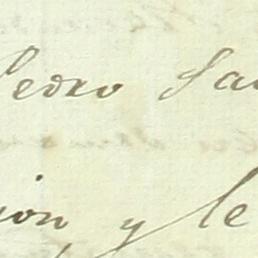 Pedro Sa
ion y le